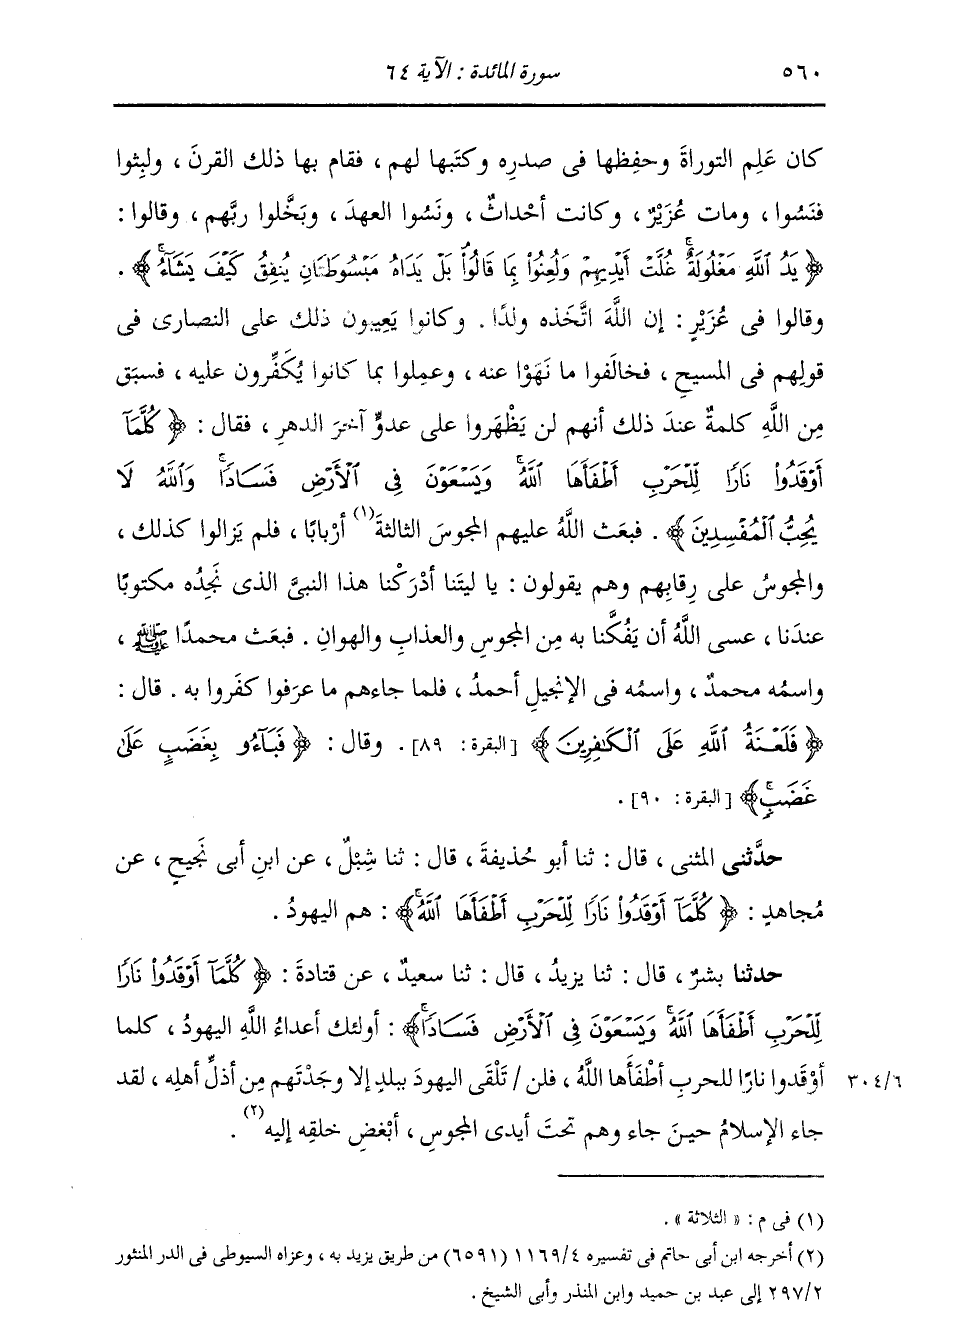 ٥٦٠ سورة المائدة : الآية ٦٤
كان عَلِم التوراةَ وحفِظها فى صدرِه وكتَبها لهم ، فقام بها ذلك القرنَ ، ولبِثوا
فنَسُوا ، ومات عُزَيْرٌ ، وكانت أحْداثٌ ، ونَسُوا العهدَ ، وبَخَّلوا ربَّهم ، وقالوا :
﴿ يَدُ ٱللَّهِ مَغْلُولَةٌۚ غُلَّتْ أَيْدِيهِمْ وَلُعِنُوا۟ بِمَا قَالُوا۟ۘ بَلْ يَدَاهُ مَبْسُوطَتَانِ يُنفِقُ كَيْفَ يَشَآءُۚ ﴾ .
وقالوا فى عُزَيْرٍ : إن اللَّهَ اتَّخَذه ولدًا . وكانوا يَعِيبون ذلك على النصارى فى
قولِهم فى المسيحِ ، فخالَفوا ما نَهَوْا عنه ، وعمِلوا بما كانوا يُكَفِّرون عليه ، فسبَق
مِن اللَّهِ كلمةٌ عندَ ذلك أنهم لن يَظْهَروا على عدوٍّ آخرَ الدهرِ ، فقال : ﴿ كُلَّمَآ
أَوْقَدُوا۟ نَارًا لِّلْحَرْبِ أَطْفَأَهَا ٱللَّهُۚ وَيَسْعَوْنَ فِى ٱلْأَرْضِ فَسَادًاۚ وَٱللَّهُ لَا
يُحِبُّ ٱلْمُفْسِدِينَ ﴾ . فبعَث اللَّهُ عليهم المجوسَ الثالثةَ(١) أرْبابًا ، فلم يَزالوا كذلك ،
والمجوسُ على رِقابِهم وهم يقولون : يا ليتَنا أدْرَكْنا هذا النبىَّ الذى نَجِدُه مكتوبًا
عندَنا ، عسى اللَّهُ أن يَفُكَّنا به مِن المجوسِ والعذابِ والهوانِ . فبعَث محمدًا ﷺ ،
واسمُه محمدٌ ، واسمُه فى الإنجيلِ أحمدُ ، فلما جاءهم ما عرَفوا كفَروا به . قال :
﴿ فَلَعْنَةُ ٱللَّهِ عَلَى ٱلْكَٰفِرِينَ ﴾ [البقرة : ٨٩] . وقال : ﴿ فَبَآءُو بِغَضَبٍ عَلَىٰ
غَضَبٍۚ ﴾ [البقرة : ٩٠] .
حدَّثنى المثنى ، قال : ثنا أبو حُذيفةَ ، قال : ثنا شِبْلٌ ، عن ابنِ أبى نَجيحٍ ، عن
مُجاهدٍ : ﴿ كُلَّمَآ أَوْقَدُوا۟ نَارًا لِّلْحَرْبِ أَطْفَأَهَا ٱللَّهُۚ ﴾ : هم اليهودُ .
حدثنا بشرٌ ، قال : ثنا يزيدُ ، قال : ثنا سعيدٌ ، عن قتادةَ : ﴿ كُلَّمَآ أَوْقَدُوا۟ نَارًا
لِّلْحَرْبِ أَطْفَأَهَا ٱللَّهُۚ وَيَسْعَوْنَ فِى ٱلْأَرْضِ فَسَادًاۚ ﴾ : أولئك أعداءُ اللَّهِ اليهودُ ، كلما
أوْقَدوا نارًا للحربِ أطْفَأَها اللَّهُ ، فلن / تَلْقَى اليهودَ ببلدٍ إلا وجَدْتَهم مِن أذلِّ أهلِه ، لقد ٣٠٤/٦
جاء الإسلامُ حينَ جاء وهم تحتَ أيدى المجوسِ ، أبْغضِ خلقِه إليه(٢) .
(١) فى م : « الثلاثة » .
(٢) أخرجه ابن أبى حاتم فى تفسيره ١١٦٩/٤ (٦٥٩١) من طريق يزيد به ، وعزاه السيوطى فى الدر المنثور
٢٩٧/٢ إلى عبد بن حميد وابن المنذر وأبى الشيخ .